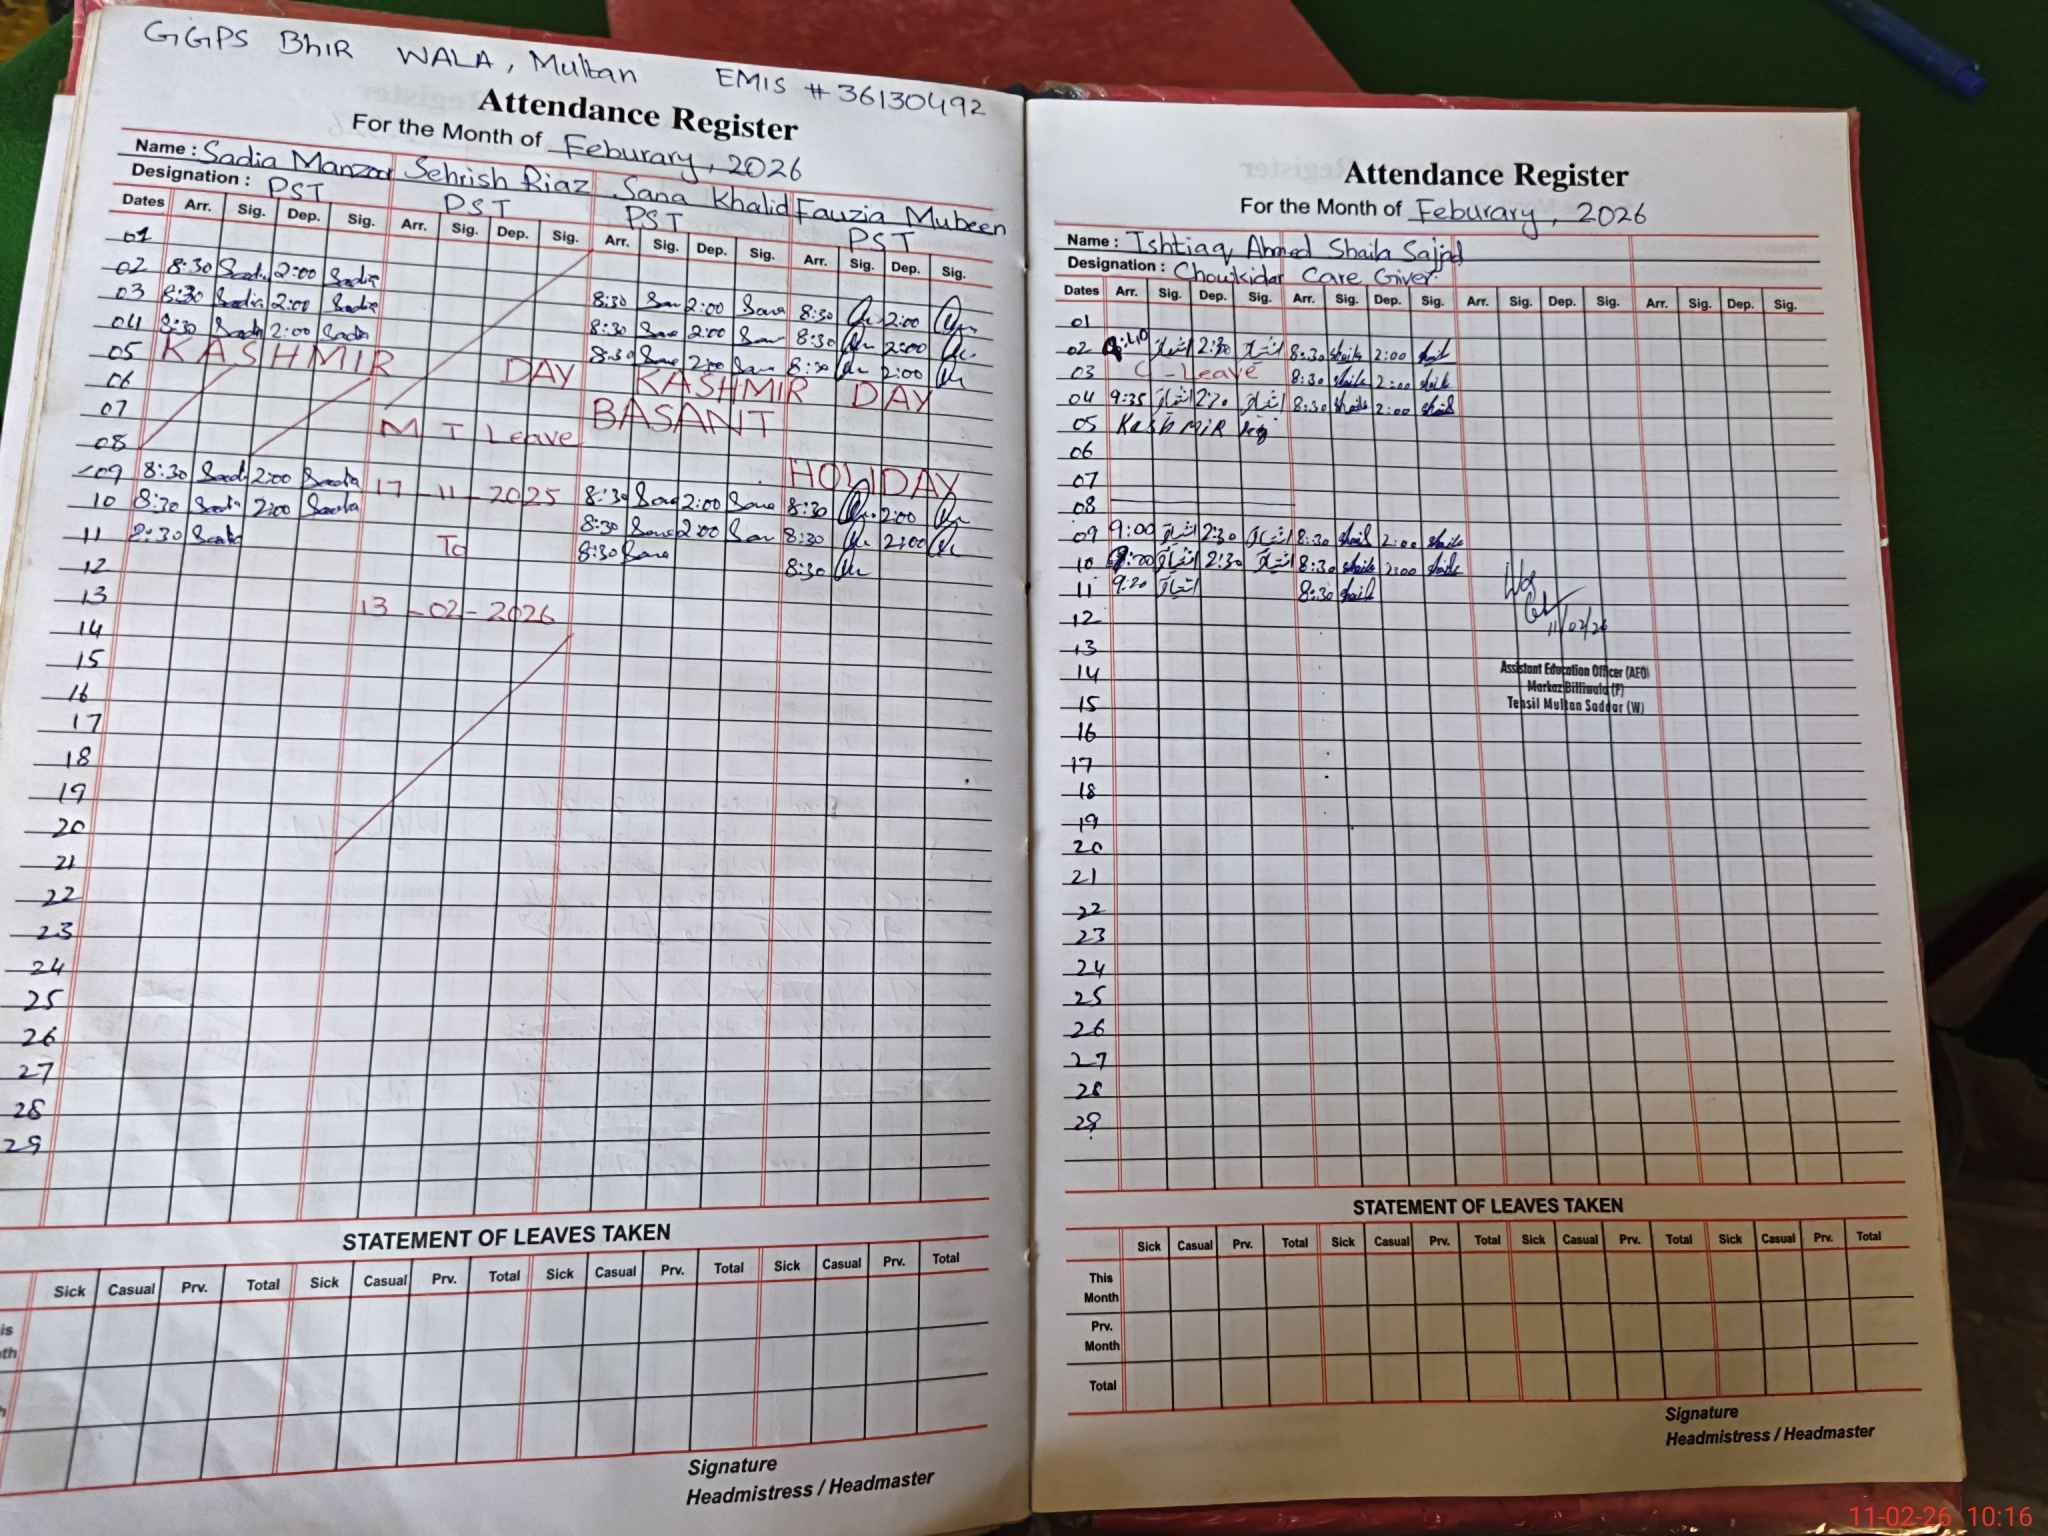 GGPS Bhir WALA, Multan EMIS # 36130492
Attendance Register
For the Month of Feburary, 2026
Name : Sadia Manzoor Sehrish Riaz Sana Khalid Fauzia Mubeen
Designation : PST PST PST PST
Dates Arr. Sig. Dep. Sig. Arr. Sig. Dep. Sig. Arr. Sig. Dep. Sig. Arr. Sig. Dep. Sig.
01
02 8:30 Sadia 2:00 Sadia 8:30 2:00 Sana 8:30 2:00
03 8:30 Sadia 2:00 Sadia 8:30 Sana 2:00 8:30 2:00
04 8:30 Sadia 2:00 Sadia 8:30 Sana 2:00 Sana 8:30 2:00
05 KASHMIR DAY KASHMIR DAY
06 BASANT
07 M T Leave
08 HOLIDAY
09 8:30 Sadia 2:00 Sadia 17-11-2025 8:30 Sana 2:00 Sana 8:30 2:00
10 8:30 Sadia 2:00 Sadia 8:30 Sana 2:00 Sana 8:30 2:00
11 8:30 Sadia To 8:30 Sana 8:30
12
13 13-02-2026
14
15
16
17
18
19
20
21
22
23
24
25
26
27
28
29
STATEMENT OF LEAVES TAKEN
Sick Casual Prv. Total Sick Casual Prv. Total Sick Casual Prv. Total Sick Casual Prv. Total
Signature
Headmistress / Headmaster
Attendance Register
For the Month of Feburary, 2026
Name : Ishtiaq Ahmed Shaila Sajjad
Designation : Chowkidar Care Giver
Dates Arr. Sig. Dep. Sig. Arr. Sig. Dep. Sig. Arr. Sig. Dep. Sig. Arr. Sig. Dep. Sig.
01
02 اشتیاق 2:30 اشتیاق 8:30 Shaila 2:00
03 C-Leave 8:30 Shaila 2:00 Shaila
04 9:35 اشتیاق اشتیاق 8:30 Shaila 2:00 Shaila
05 KashMiR
06
07
08
09 9:00 اشتیاق 2:30 اشتیاق 8:30 Shaila 2:00 Shaila
10 اشتیاق 2:30 اشتیاق 8:30 Shaila 2:00 Shaila
11 9:20 اشتیاق 8:30 Shaila
12
11/02/26
13
14
15
Assistant Education Officer (AEO)
Markaz Billiwala (F)
Tehsil Multan Saddar (W)
16
17
18
19
20
21
22
23
24
25
26
27
28
29
STATEMENT OF LEAVES TAKEN
Sick Casual Prv. Total Sick Casual Prv. Total Sick Casual Prv. Total Sick Casual Prv. Total
This Month
Prv. Month
Total
Signature
Headmistress / Headmaster
11-02-26 10:16